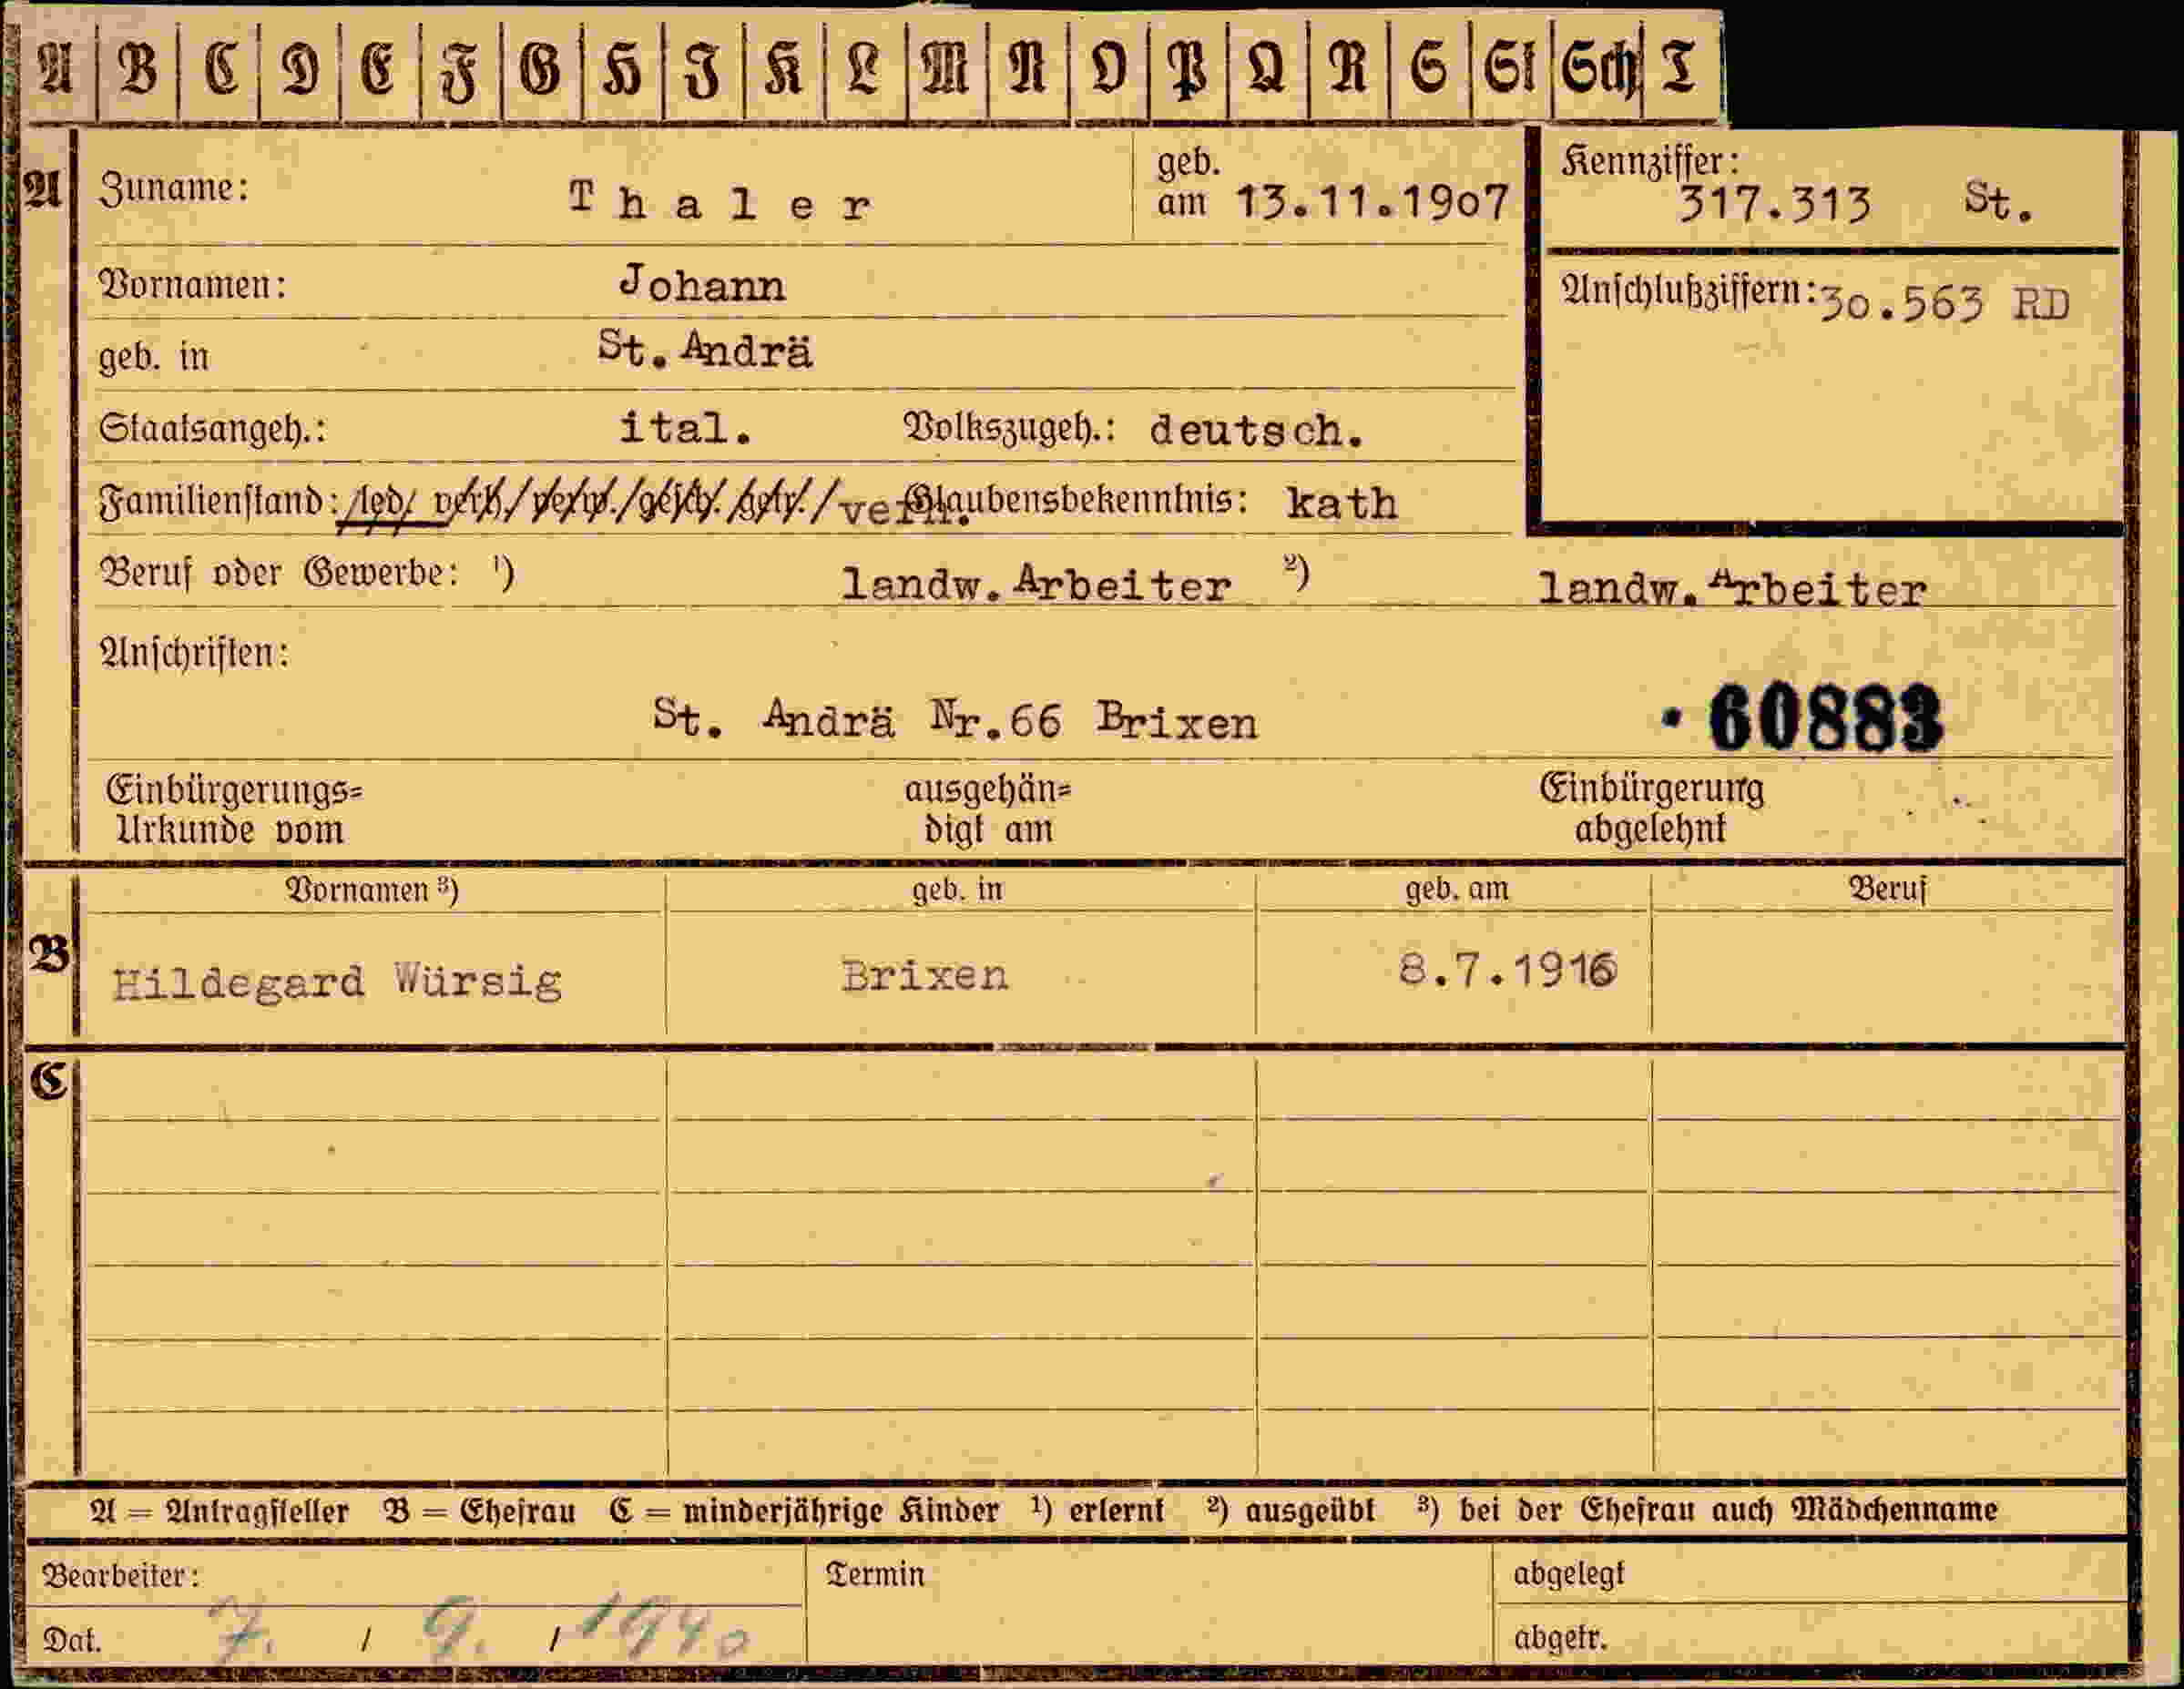 A B C D E F G H I K L M N O P Q R S St Sch T
A Zuname: Thaler geb. am 13.11.1907 Kennziffer: 317.313 St.
Vornamen: Johann Anschlußziffern: 30.563 RD
geb. in St. Andrä
Staatsangeh.: ital. Volkszugeh.: deutsch.
Familienstand: led/ verh/ verw./ gesch./ getr./ verh. Glaubensbekenntnis: kath
Beruf oder Gewerbe: ¹) landw. Arbeiter ²) landw. Arbeiter
Anschriften:
St. Andrä Nr.66 Brixen · 60883
Einbürgerungs= ausgehän= Einbürgerung
Urkunde vom digt am abgelehnt
Vornamen ³) geb. in geb. am Beruf
B Hildegard Würsig Brixen 8.7.1916
C
A = Antragsteller B = Ehefrau C = minderjährige Kinder ¹) erlernt ²) ausgeübt ³) bei der Ehefrau auch Mädchenname
Bearbeiter: Termin abgelegt
Dat. 7. / 9. / 1940 abgetr.